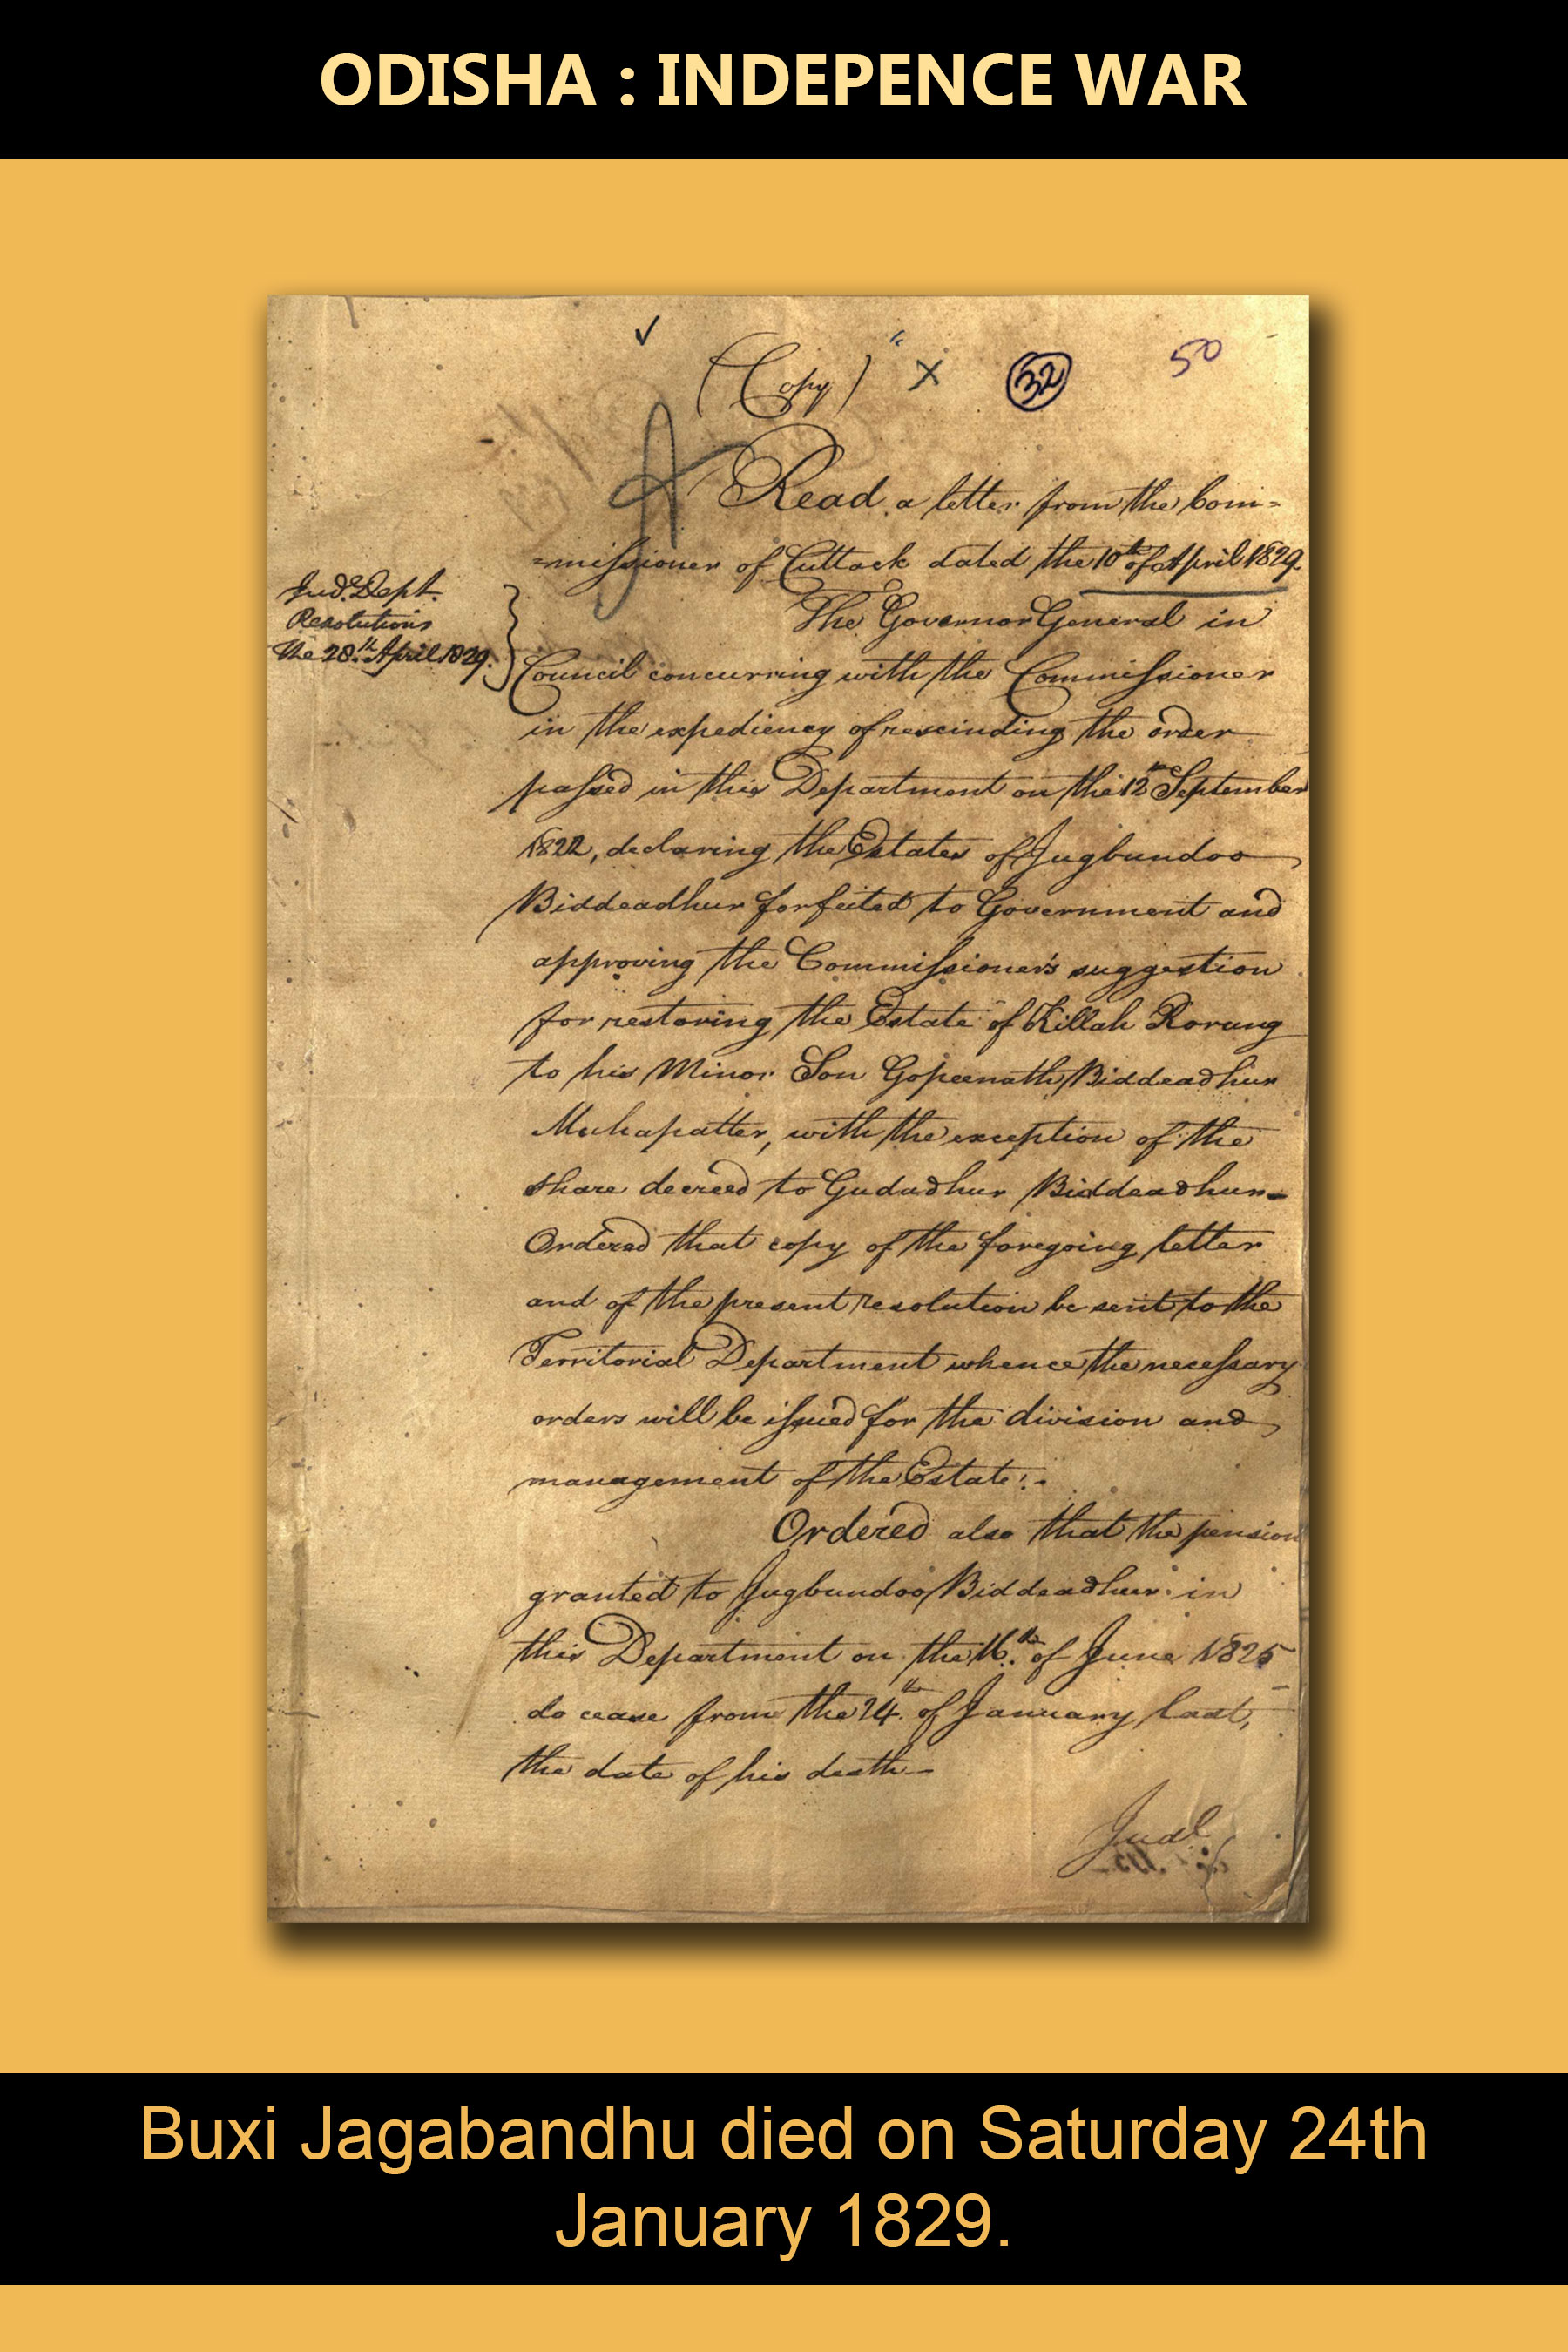 ODISHA : INDEPENCE WAR
(Copy) X 32 50
Read a letter from the Com=
=missioner of Cuttack dated the 10th of April 1829.
Jud. Dept.
Resolutions
The 28th April 1829.
The Governor General in
Council concurring with the Commissioner
in the expediency of rescinding the order
passed in this Department on the 12th September
1822, declaring the Estates of Jugbundoo
Biddeadhur forfeited to Government and
approving the Commissioner's suggestion
for restoring the Estate of Killah Rorung
to his Minor Son Gopeenath Biddeadhur
Muhapatter, with the exception of the
share decreed to Gudadhur Biddeadhur-
Ordered that copy of the foregoing letter
and of the present resolution be sent to the
Territorial Department whence the necessary
orders will be issued for the division and
management of the Estate.-
Ordered also that the pension
granted to Jugbundoo Biddeadhur in
this Department on the 16th of June 1825
do cease from the 24th of January last,
the date of his death-
Buxi Jagabandhu died on Saturday 24th
January 1829.